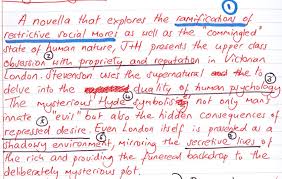 ①
A novella that explores the ramifications of
restrictive social mores as well as the "commingled"
state of human nature, J+H presents the upper class
obsession with propriety and reputation in Victorian
②
London. Stevenson uses the supernatural and the to
delve into the duality of human psychology.
③
The mysterious Hyde symbolises not only man's
④
innate "evil" but also the hidden consequences of
repressed desire. Even London itself is presented as a
⑤
shadowy environment, mirroring the secretive lives of
⑥
the rich and providing the funereal backdrop to the
deliberately mysterious plot.